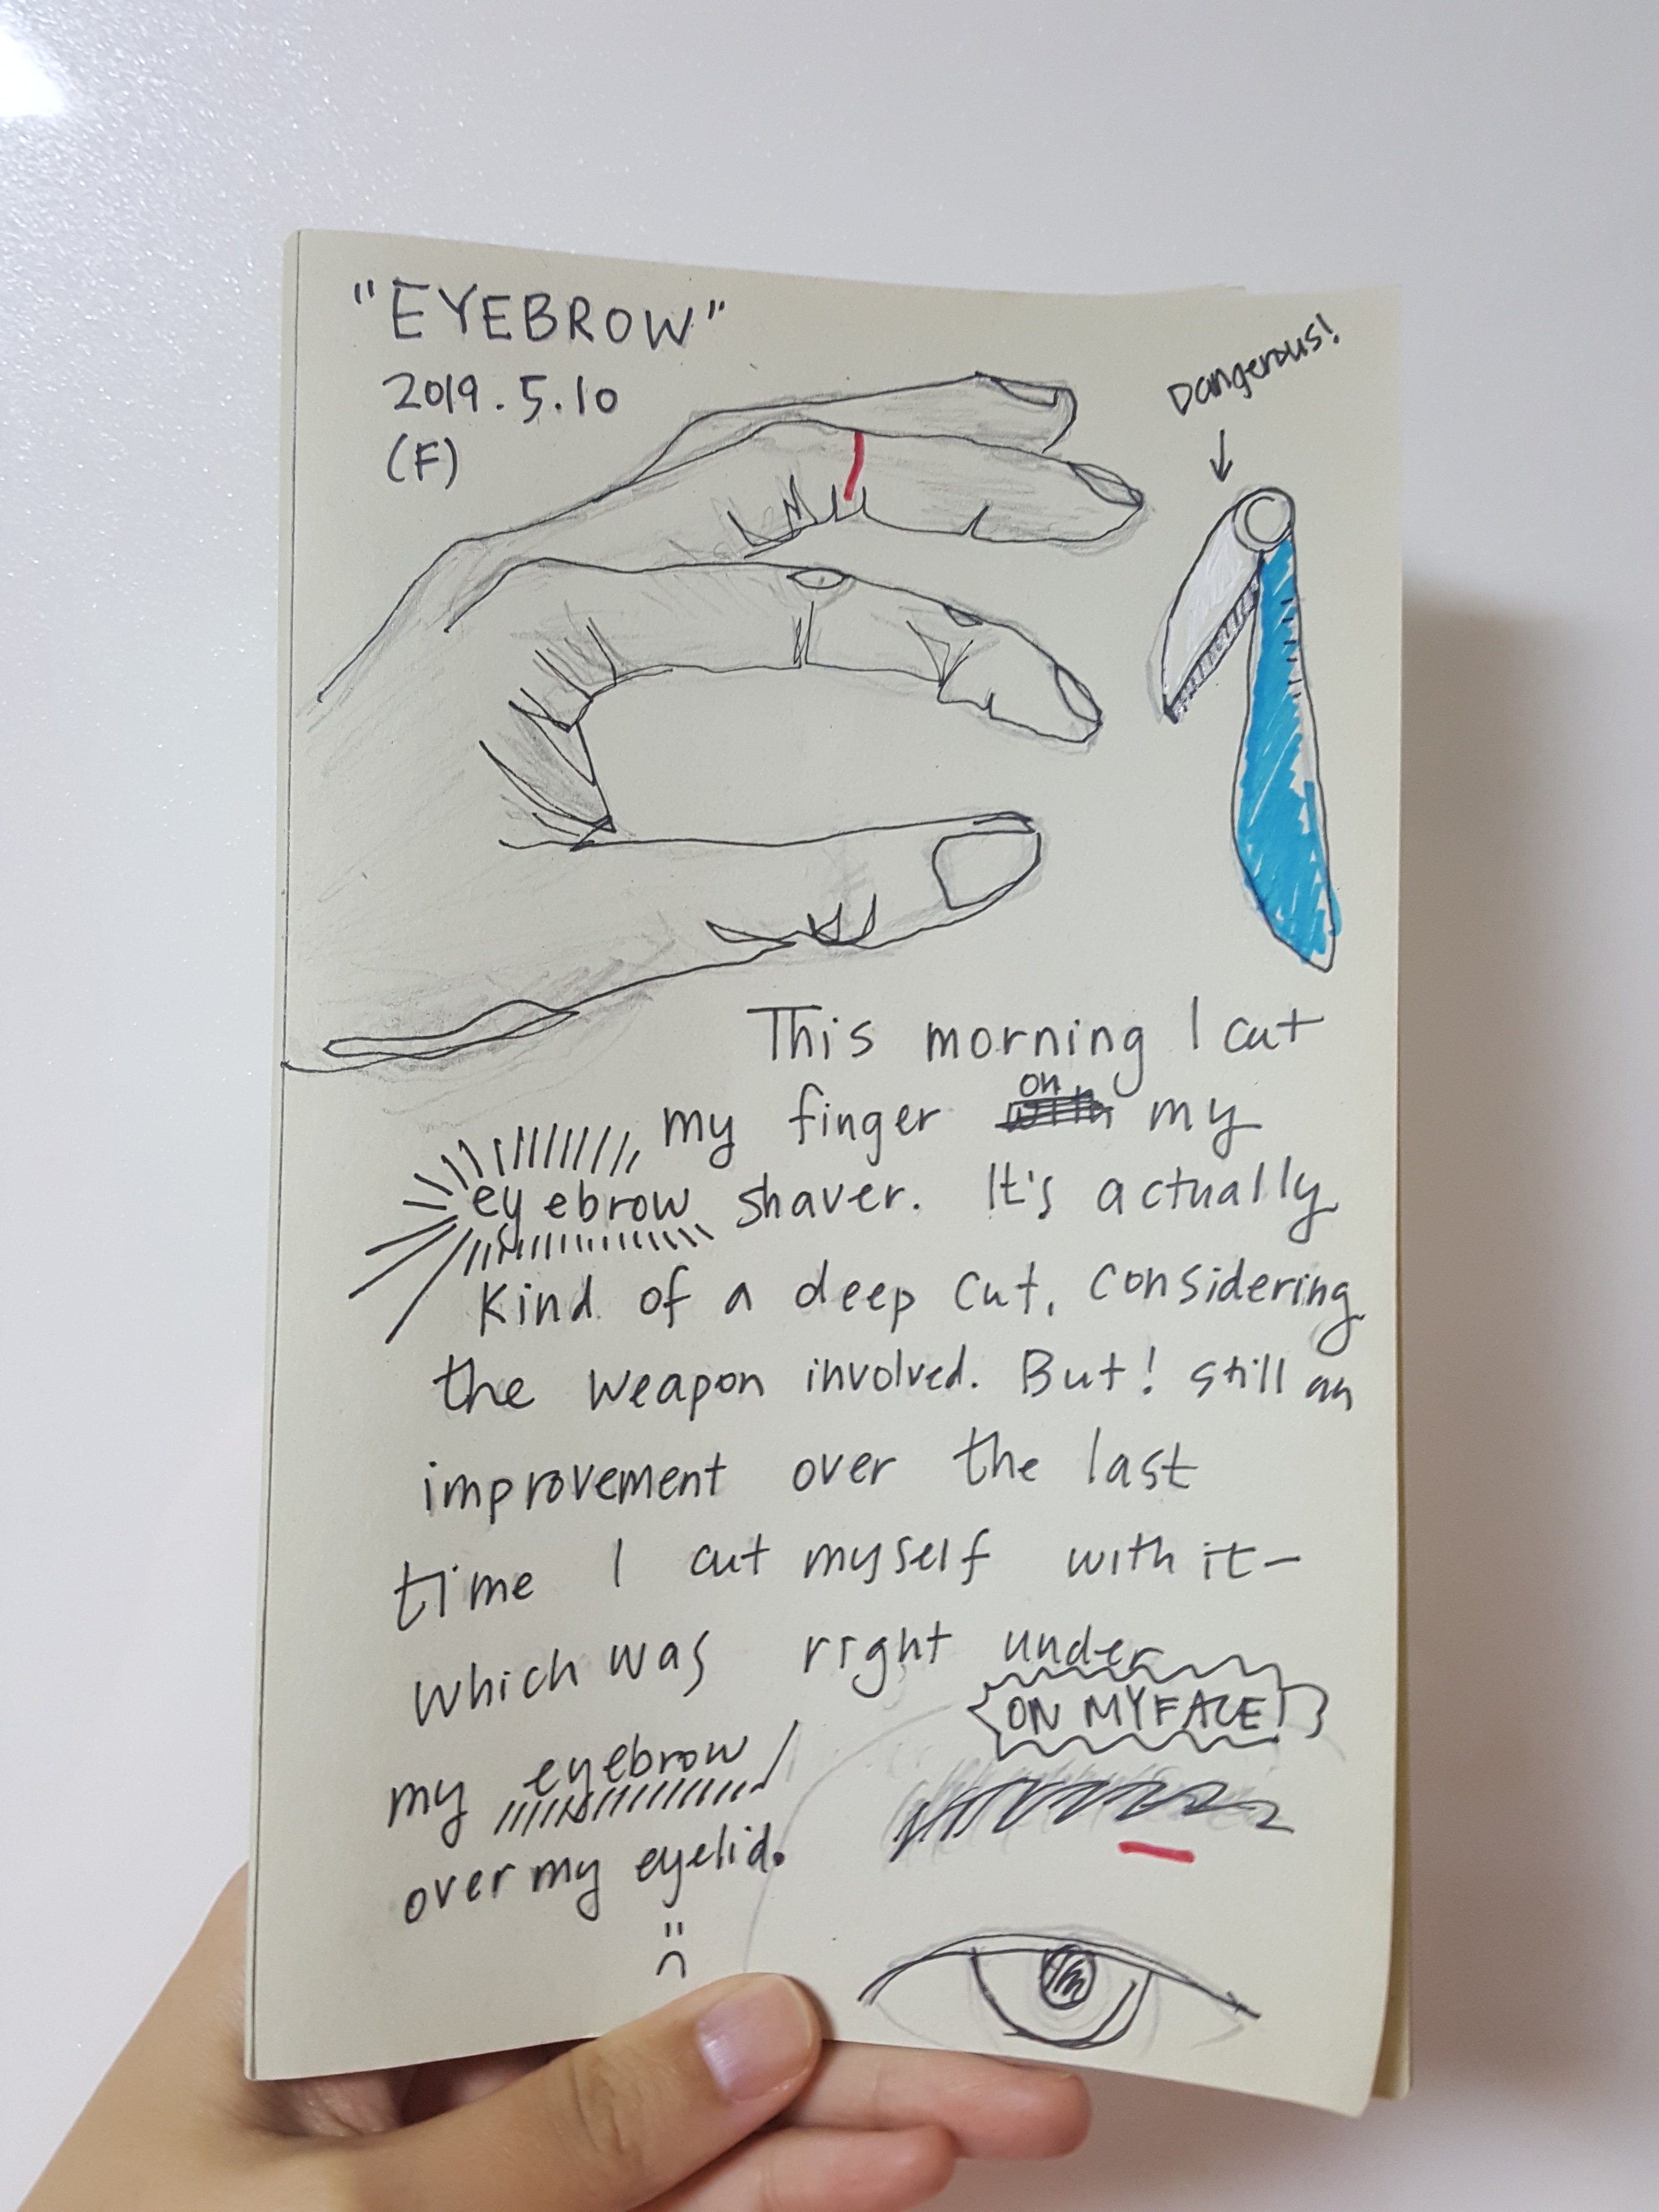 "EYEBROW"
2019.5.10
(F)
Dangerous!
This morning I cut
my finger on my
eyebrow shaver. It's actually
kind of a deep cut, considering
the weapon involved. But! still an
improvement over the last
time I cut myself with it-
which was right under
ON MY FACE!
my eyebrow
over my eyelid.